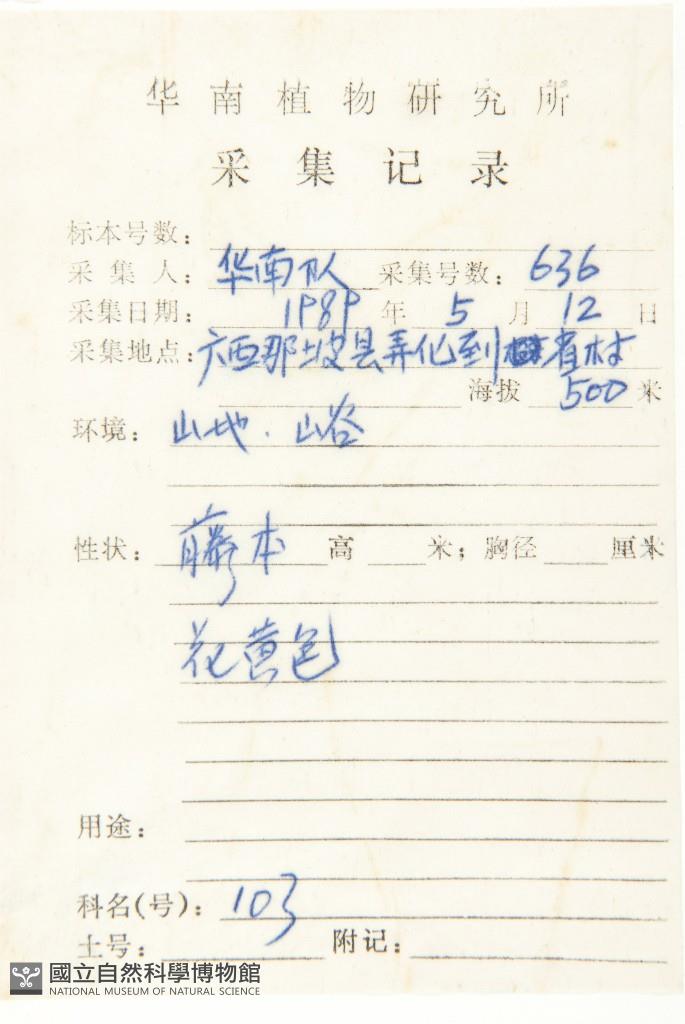 华南植物研究所
采集记录
标本号数：
采集人：华南队 采集号数：636
采集日期：1989年5月12日
采集地点：广西那坡县弄化到 省村
海拔500米
环境：山地．山谷
性状：藤本 高 米；胸径 厘米
花黄色
用途：
科名(号)：103
土号： 附记：
國立自然科學博物館
NATIONAL MUSEUM OF NATURAL SCIENCE